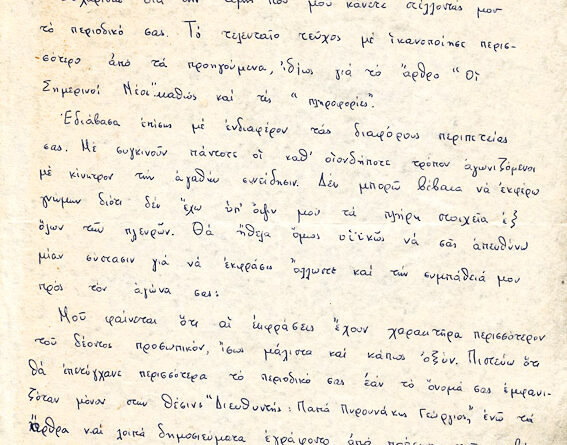 εὐχαριστῶ διὰ τὴν τιμὴ ποὺ μοῦ κάνετε στέλλοντάς μου
τὸ περιοδικό σας. Τὸ τελευταῖο τεῦχος μὲ ἱκανοποίησε περισ-
σότερο ἀπὸ τὰ προηγούμενα, ἰδίως γιὰ τὸ ἄρθρο "Οἱ
Σημερινοὶ Νέοι" καθὼς καὶ τὶς "πληροφορίες".
Ἐδιάβασα ἐπίσης μὲ ἐνδιαφέρον τὰς διαφόρους περιπετείας
σας. Μὲ συγκινοῦν πάντοτε οἱ καθ' οἱονδήποτε τρόπον ἀγωνιζόμενοι
μὲ κίνητρον τὴν ἀγαθὴν συνείδησιν. Δὲν μπορῶ βέβαια νὰ ἐκφέρω
γνώμην διότι δὲν ἔχω ὑπ' ὄψιν μου τὰ πλήρη στοιχεῖα ἐξ
ὅλων τῶν πλευρῶν. Θὰ ἤθελα ὅμως νὰ σᾶς ἀπευθύνω
μίαν σύστασιν γιὰ νὰ ἐκφράσω ἄλλωστε καὶ τὴν συμπάθειά μου
πρὸς τὸν ἀγῶνα σας:
Μοῦ φαίνεται ὅτι αἱ ἐκφράσεις ἔχουν χαρακτῆρα περισσότερον
τοῦ δέοντος προσωπικόν, ἴσως μάλιστα καὶ κάπως ὀξύν. Πιστεύω ὅτι
θὰ ἐπετύγχανε περισσότερα τὸ περιοδικό σας ἐὰν τὸ ὄνομά σας ἐμφανι-
ζόταν μόνον στὴν θέσιν "Διευθυντής: Παπᾶ Πυρουνάκης Γεώργιος", ἐνῶ τὰ
ἄρθρα καὶ λοιπὰ δημοσιεύματα ἐγράφοντο ἀπὸ